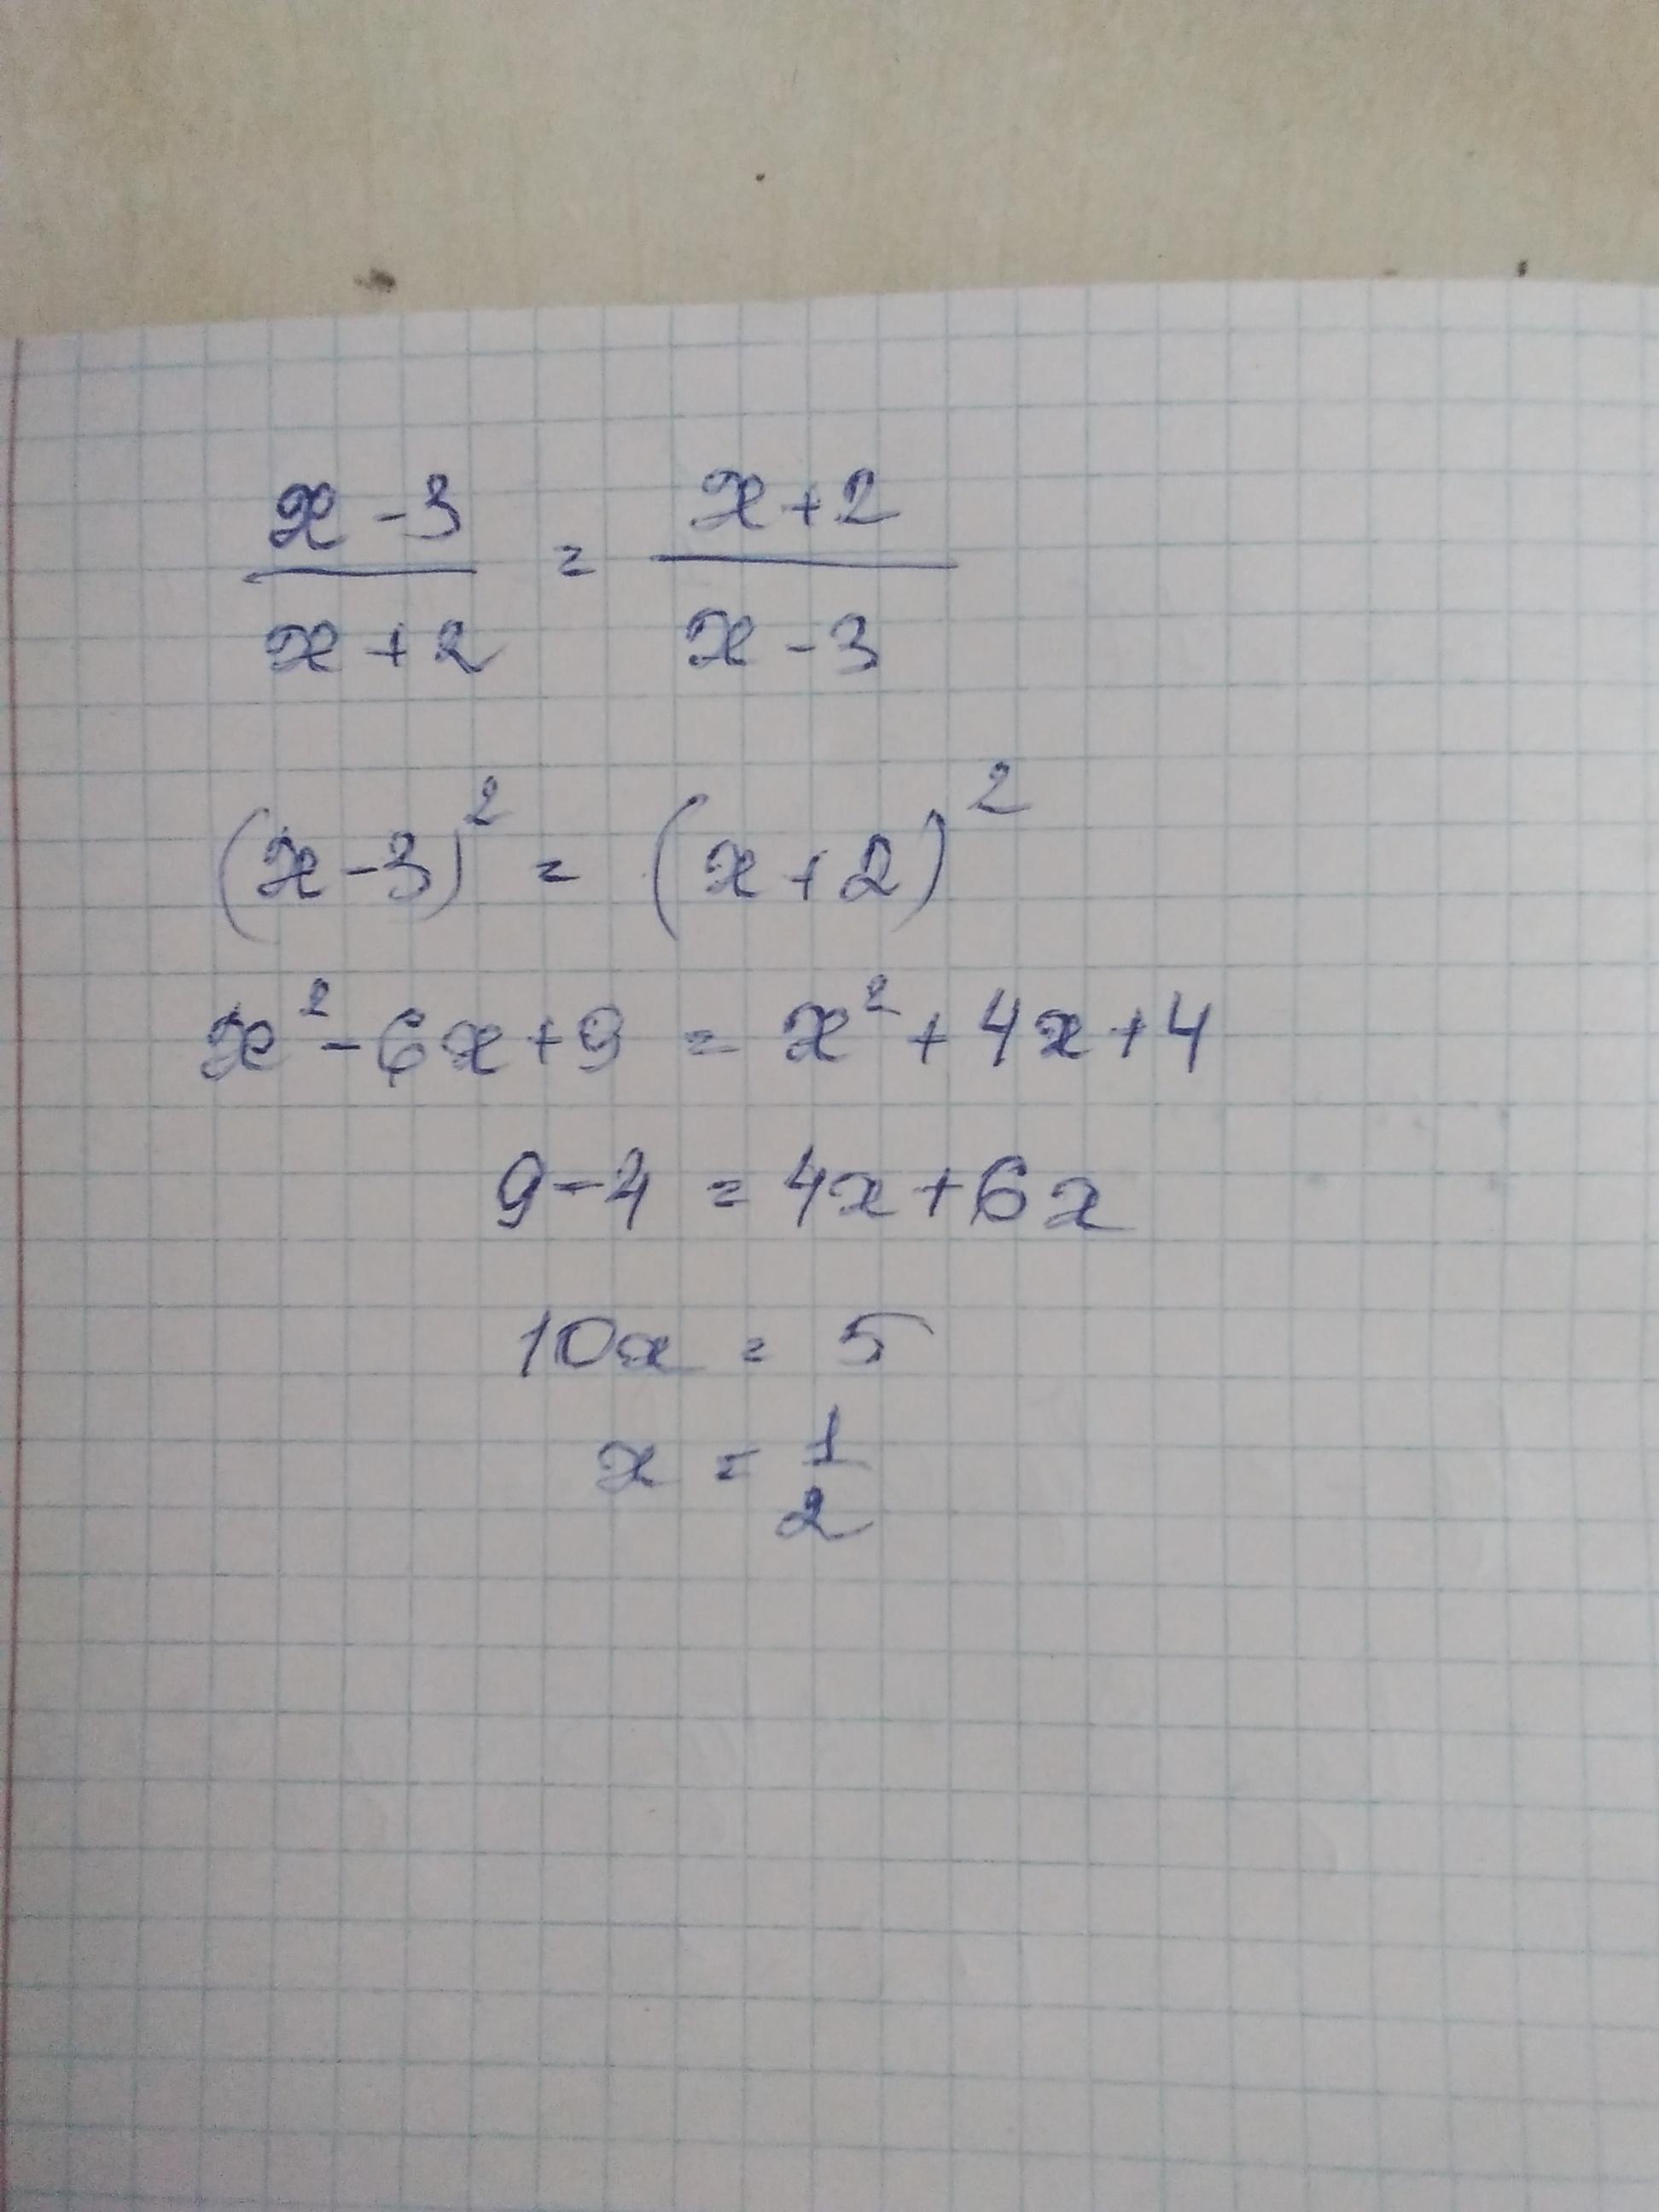 x - 3 / x + 2 = x + 2 / x - 3
(x - 3)² = (x + 2)²
x² - 6x + 9 = x² + 4x + 4
9 - 4 = 4x + 6x
10x = 5
x = 1/2